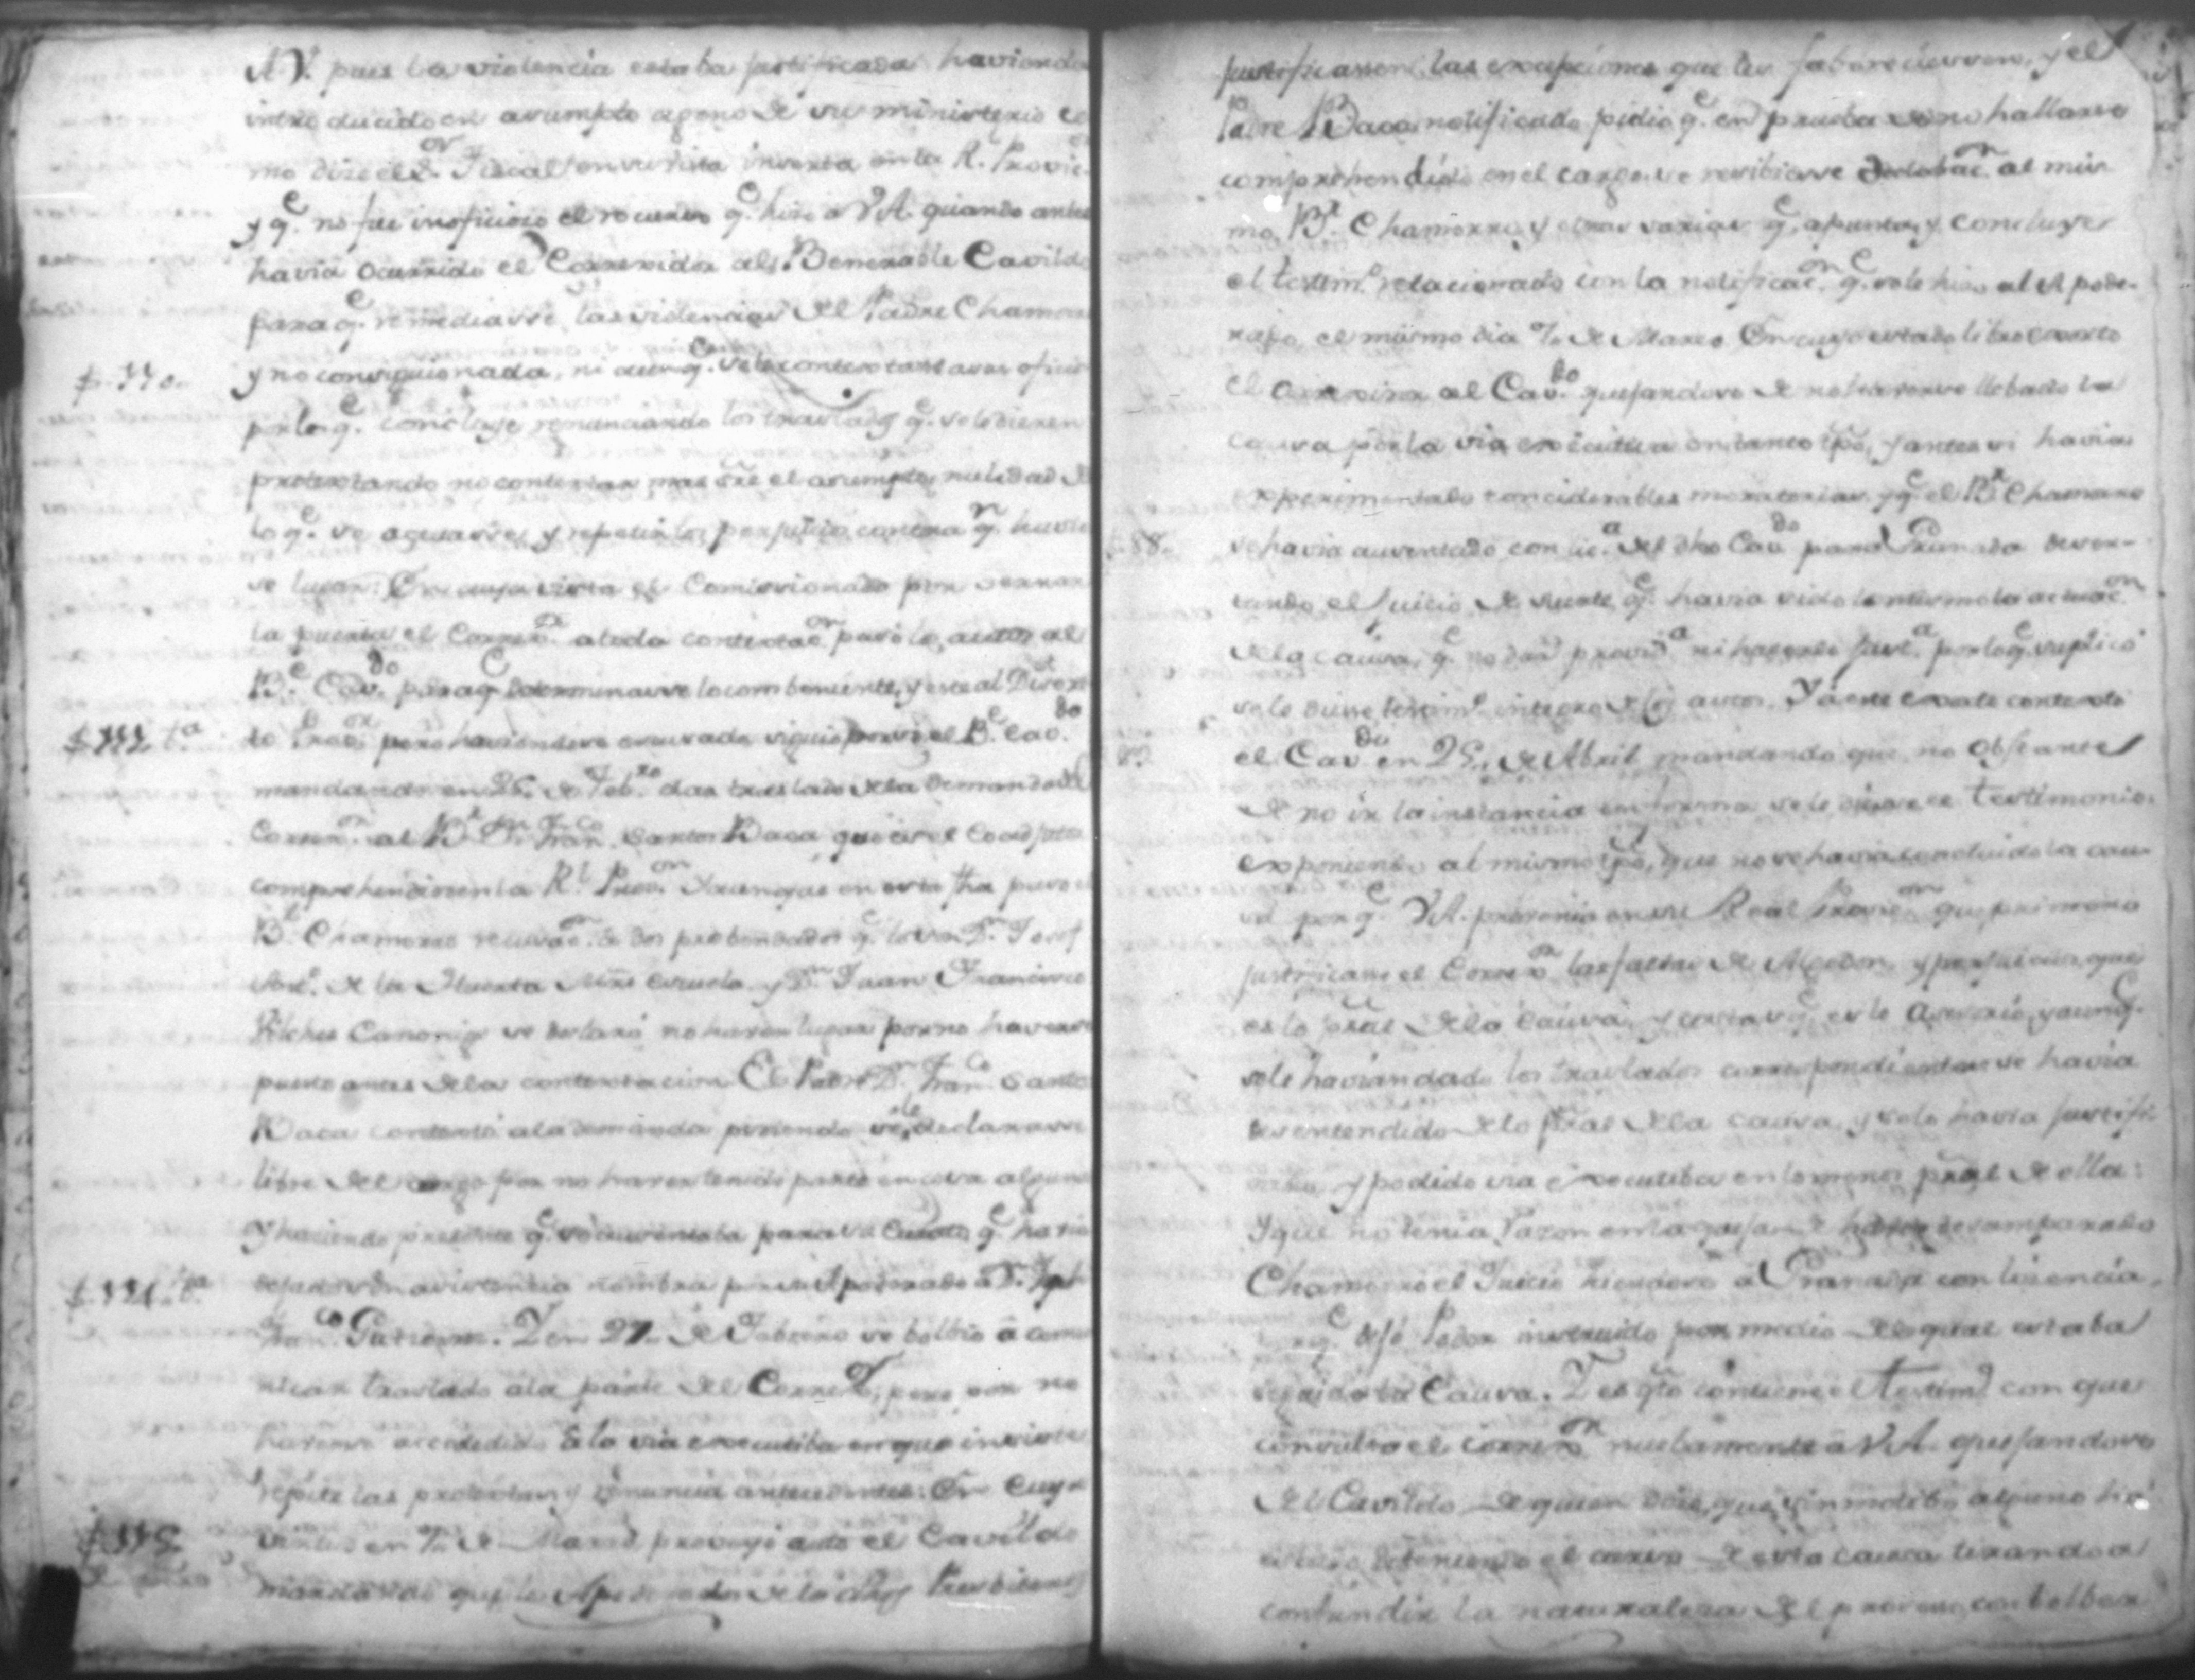 A V. pues la violencia estaba justificada haviendo
introducidose en asumpto ageno de su ministerio co
mo dize el S.or Fiscal en su vista inserta en la R.l Provic.on
y q.e no fue inoficioso el recurso q.e hizo a V.A. quando antes
havia ocurrido el Corregidor al Benerable Cavildo
para q.e remediasse las violencias del Padre Chamorro
f. 110. y no consiguio nada, ni aun q.e se le contestase a sus oficios
por lo q.e concluye renunciando los traslados q.e se le dieren
protestando no contestar mas sre el asumpto, nulidad de
lo q.e se actuasse, y repetir los perjuicios contra q.n huvie
se lugar: En cuya vista el Comisionado por cerrar
la puerta el Correx.or a toda contextac.on pasó los autos al
B.e Cav.do para q.e determinasse lo combeniente, y este al Director
f. 112 b.ta de Prov.on pero haviendose escusado siguio por si el B.e Cav.do
mandando en 26. de Feb.ro dar traslado de la demanda del
Correx.or al B.r D.n Fran.co Santos Baca que es el Coadjutor
comprehendido en la R.l Prov.on Y aunque en esta fha puso el
B.r Chamorro recusac.on de dos prebendados q.e lo son D.n Josef
Ant.o de la Huerta Mre Escuela, y D.n Juan Francisco
Vilches Canonigo se declaró no haver lugar por no haverse
puesto antes de la contestacion El Padre D.n Fran.co Santos
Baca contestó a la demanda pidiendo se le declarasse
libre del cargo por no haver tenido parte en cosa alguna
Y haciendo presente q.e se ausentaba para su Curato q.e havia
f. 121. b.ta dejado sin asistencia nombra por su Apoderado a D.n Jph
Fran.co Gutierrez. Y en 27. de Febrero se bolbio a comu
nicar traslado a la parte del Correx.or, pero por no
haverse accedido a la via executiba en que insiste
repite las protestas, y renuncia antecedentes: En cuya
f. 115 vista en 7. de Marzo proveyo auto el Cavildo
mandando que los Apoderados de los dhos Presbiteros
justificassen las excepciones que les faborecieren, y el
Padre Baca notificado pidio q.e en prueba de no hallarse
comprehendido en el cargo se recibiesse declarac.on al mis
mo B.r Chamorro y otras varias q.e apunta, y concluye
el testim.o relacionado con la notificac.on q.e se le hizo al Apode-
rado el mismo dia 7. de Marzo En cuyo estado libro exorto
el Corregidor al Cav.do quejandose de no haverse llebado la
causa por la via executiva en tanto tpo, y antes si havia
experimentado considerables moratorias y q.e el B.r Chamorro
f. 88. se havia ausentado con lic.a del dho Cav.do para Granada deser-
tando el juicio, de suerte q.e havia sido lo mismo la actuac.on
de la causa, q.e no dar provid.a ni hacerle just.a por lo q.e suplicó
se le diesse testim.o integro de los autos. Y a este exorto contestó
89 el Cav.do en 25. de Abril mandando que no obstante
de no ir la instancia en forma se le diesse el testimonio.
exponiendo al mismo tpo, que no se havia concluido la cau
sa por q.e V.A. prevenia en su Real Provic.on que primero
justificasse el Correx.or las faltas de Algodon, y perjuicios que
es lo pral de la causa, y cosa q.e es lo accesorio, y aunq.e
se le havian dado los traslados correspondientes se havia
desentendido de lo pral de la causa, y solo havia justifi
cado, y pedido via executiba en lo menos pral de ella:
Y que no tenia razon en la queja de haver desamparado
Chamorro el Juicio yiendose a Granada con licencia,
porq.e dejó Poder instruido por medio del qual estaba
seguida la Causa. Y es q.to contiene el Testim.o con que
consultó el Correx.or nuebamente a V.A. quejandose
del Cavildo de quien dize, que sin motibo alguno ha
estado deteniendo el curso de esta causa tirando a
confundir la naturaleza del proceso, con bolber